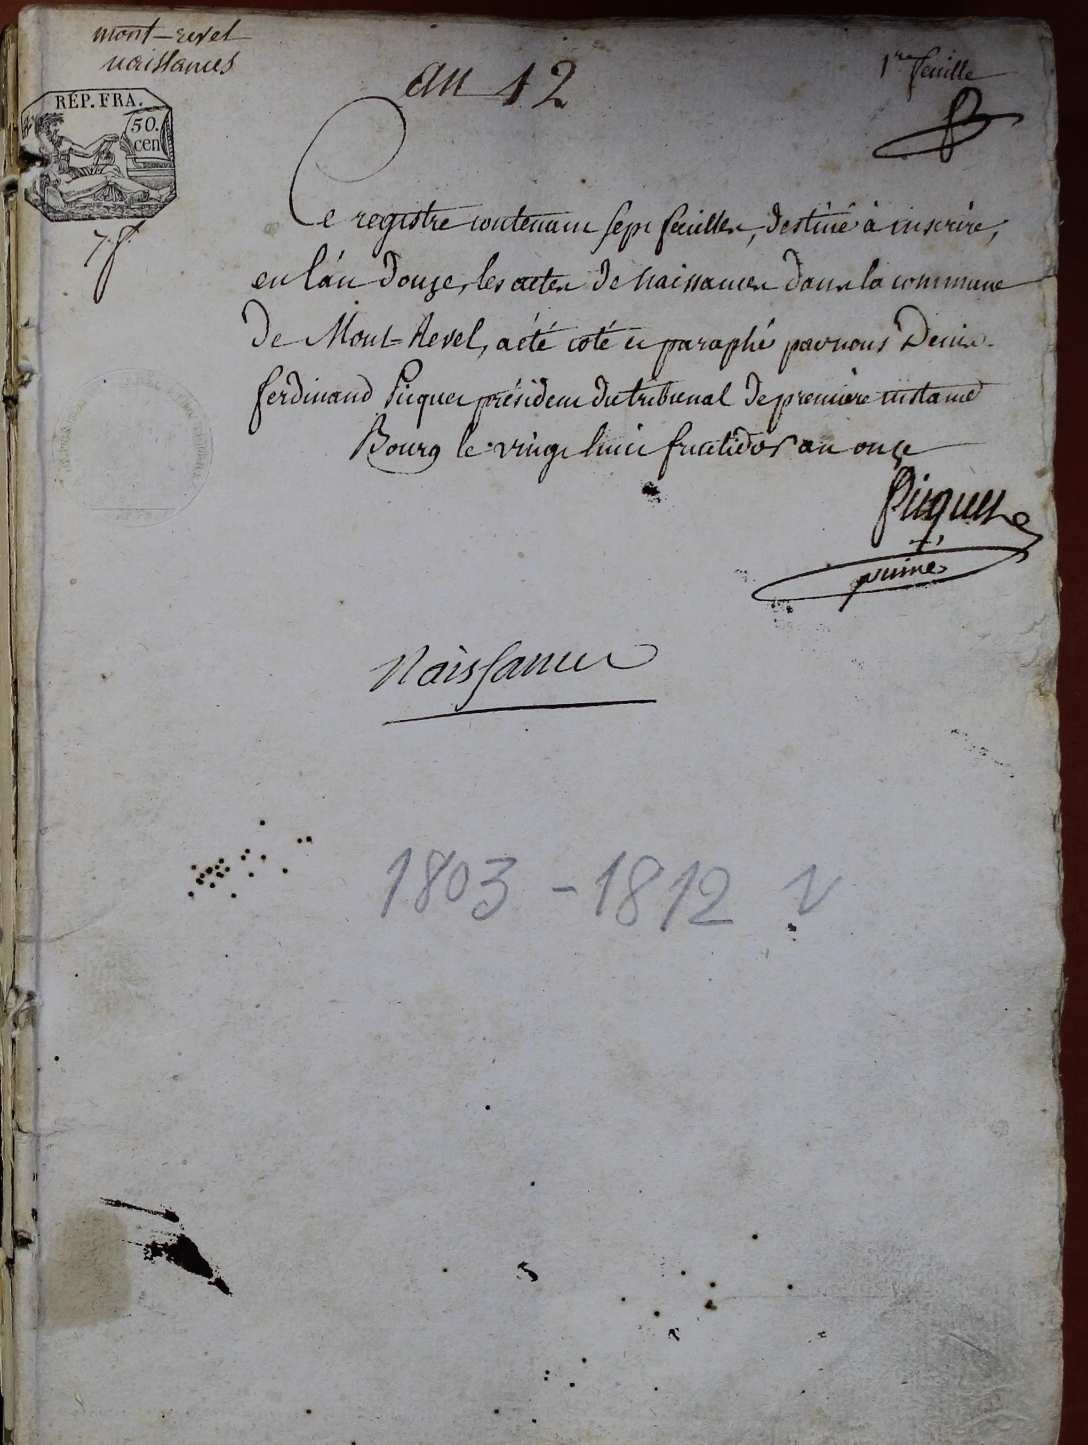 mont-revel
naissances
an 12
1re feuille
RÉP. FRA.
50.
cen
7 f.
Ce registre contenant sept feuilles, destiné à inscrire,
en l'an douze, les actes de naissances dans la commune
de Mont=Revel, a été coté et paraphé par nous Denis
ferdinand Picquet président du tribunal de première instance
Bourg le vingt huit fructidor an onze
Picquet
Naissances
1803 - 1812